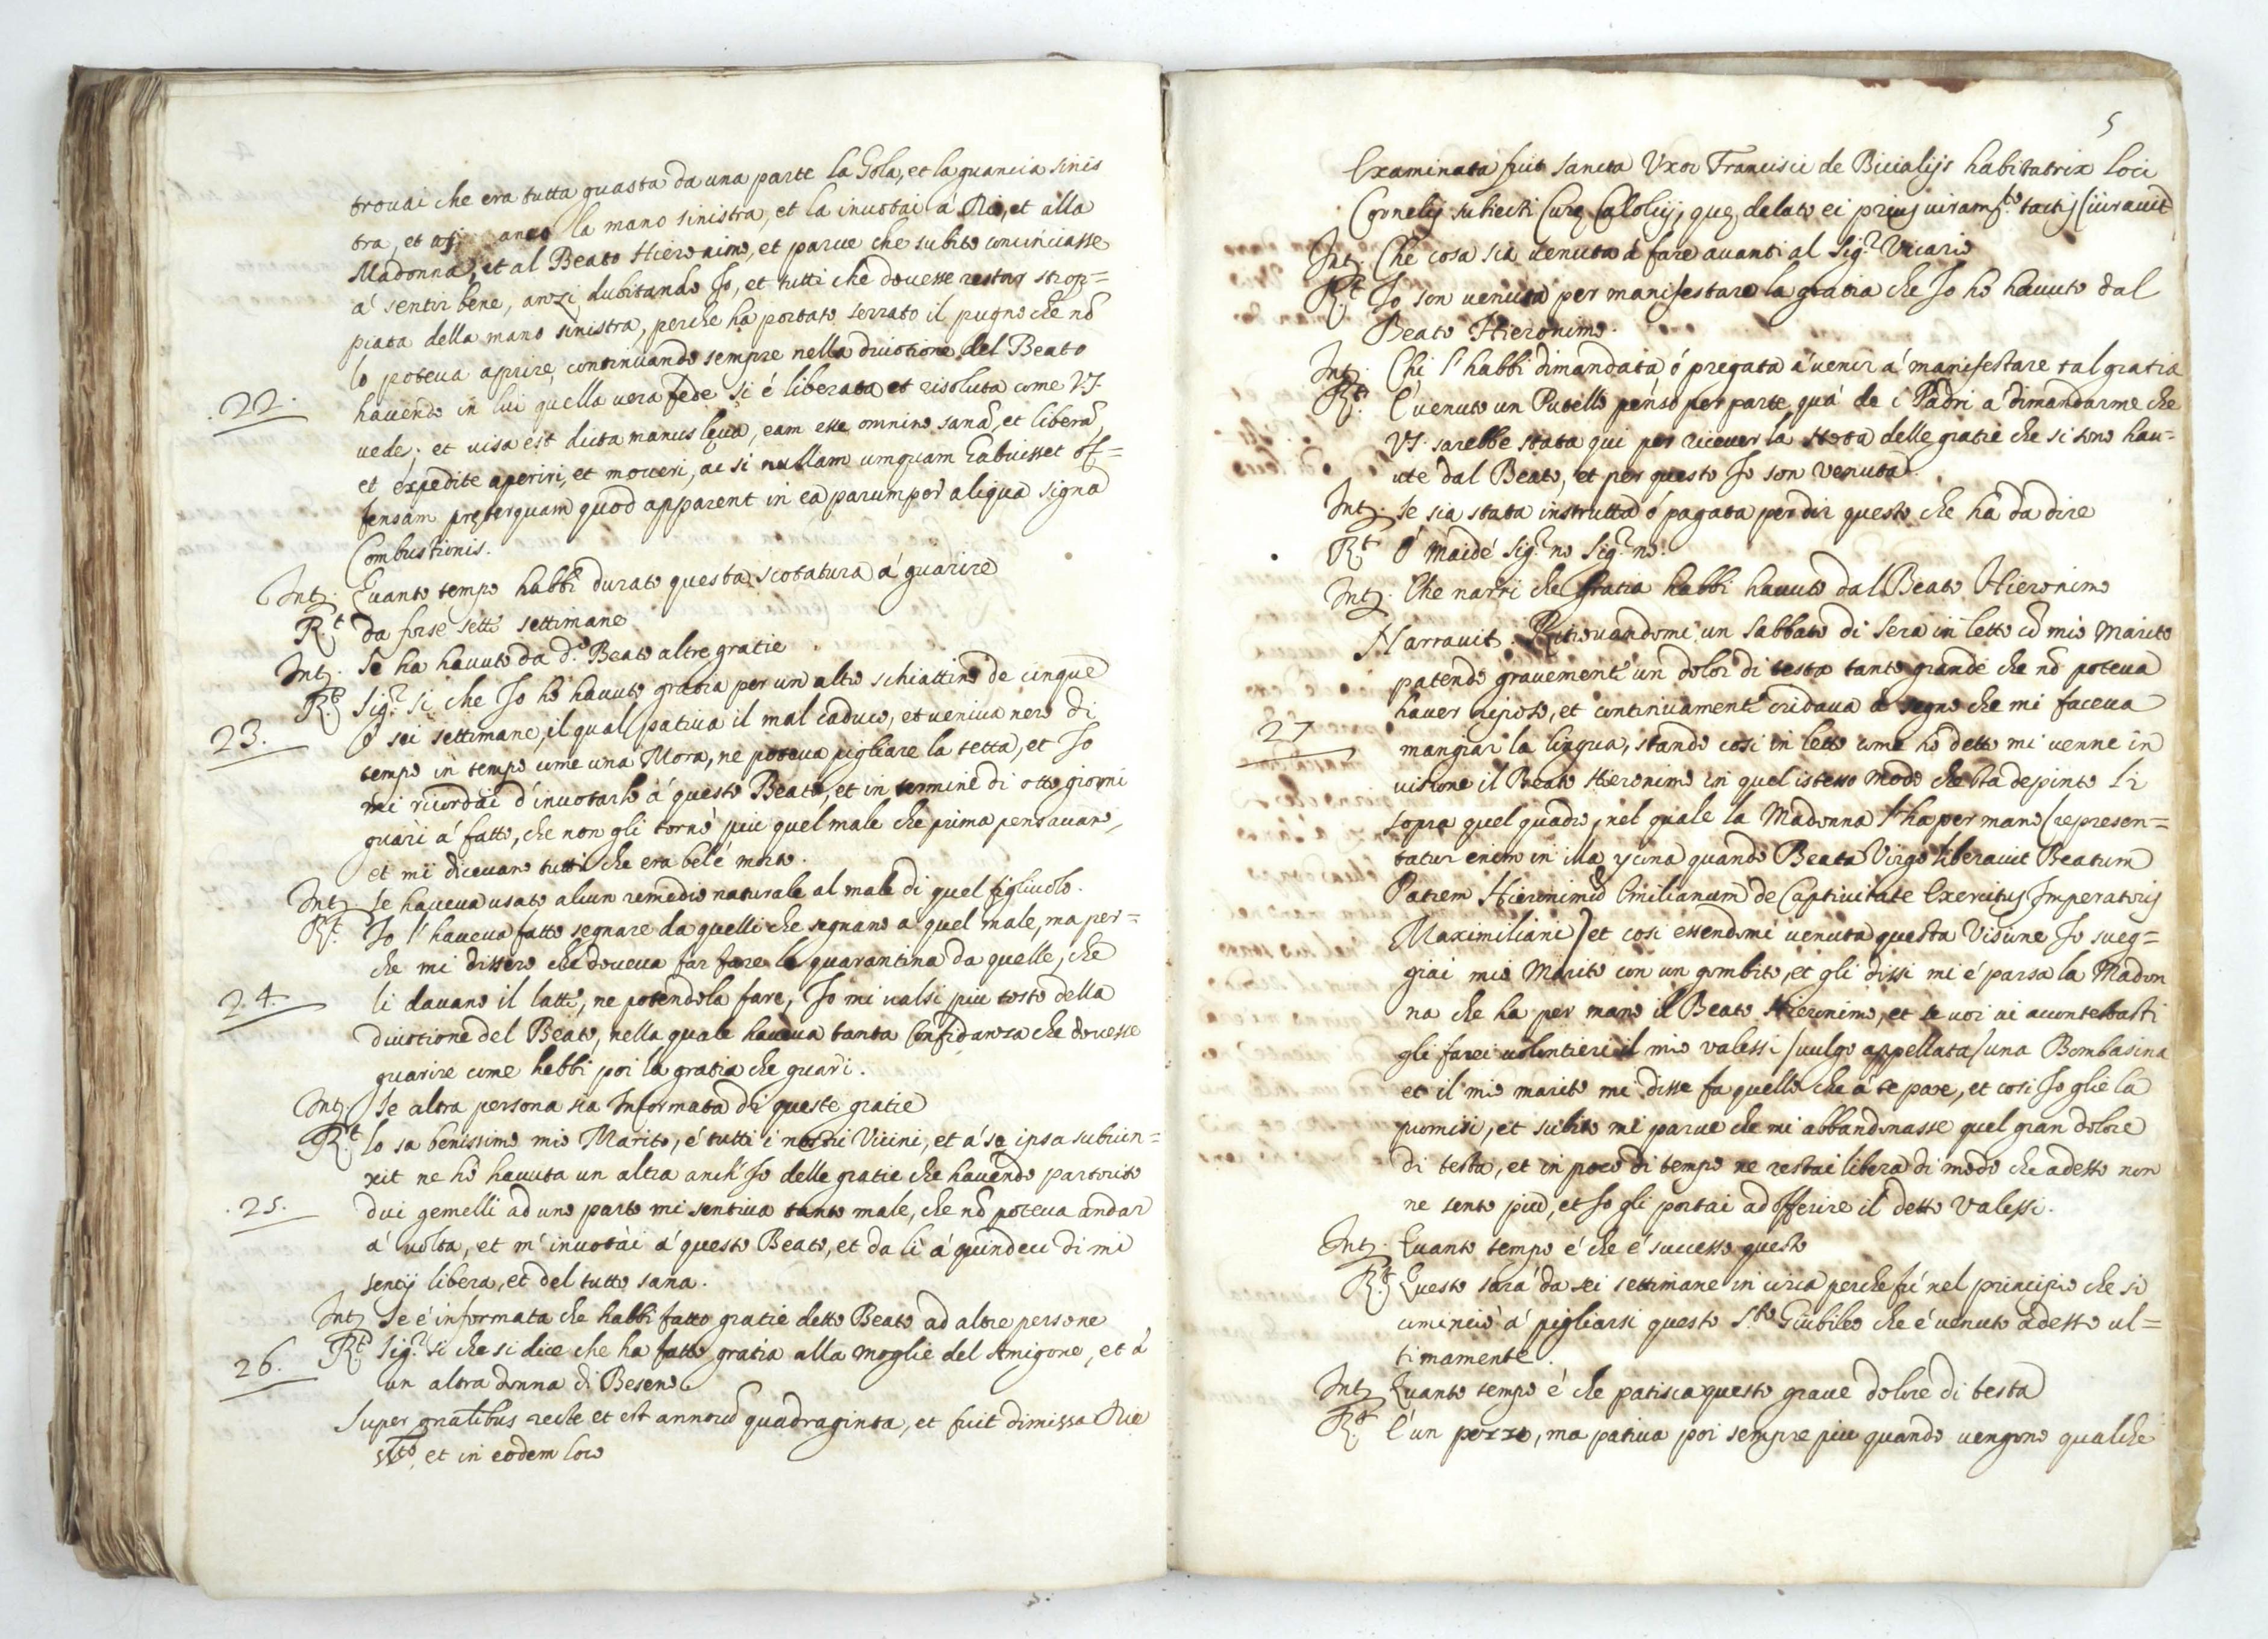 trovai che era tutta guasta da una parte la Gola, et la guancia sinis
tra, et anco la mano sinistra, et la invotai á Dio, et alla
Madonna, et al Beato Hieronimo, et parve che subito cominciasse
á sentir bene, anzi dubitando Io, et tutti che dovesse restar strop=
piata della mano sinistra, perche ha portato serrato il pugno che nõ
lo poteva aprire, continuando sempre nella divotione del Beato
22. havendo in lui quella vera fede si é liberata et risoluta come V.S.
vede; et visa est dicta manus leva, eam esse omnino sanã, et liberã,
et expedite aperiri, et moveri, ac si nullam umquam habuisset of=
fensam preterquam quod apparent in ea parumper aliqua signa
Combustionis.
Intz. Quanto tempo habbi durato questa scotatura á guarire
Rt. da forse sette settimane
Intz. Se ha havuto da d.o Beato altre gratie
Rt. Sig.r si che Io hó havuto gratia per un altro schiattino de cinque
23. ó sei settimane, il qual pativa il mal caduco, et veniva nero di
tempo in tempo come una Mora, ne poteva pigliare la tetta, et Io
mi ricordai d'invotarlo á questo Beato, et in termine di otto giorni
guarì á fatto, che non gli tornò piu quel male che prima pensavano,
et mi dicevano tutti che era bel é morto.
Intz. Se haveva usato alcun remedio naturale al male di quel figliuolo.
Rt. Io l'haveva fatto segnare da quelli che segnano a quel male, ma per=
che mi dissero che doveva far fare la quarantina da quelle, che
24. li davano il latte, ne potendola fare, Io mi valsi piu tosto della
divotione del Beato, nella quale haveva tanta Confidanza che dovesse
guarire come hebbi poi la gratia che guari.
Intz. Se altra persona sia Informata di queste gratie
Rt. lo sa benissimo mio Marito, é tutti i nostri Vicini, et á se ipsa subiun=
xit ne hó havuta un altra anch'Io delle gratie che havendo partorito
25. dui gemelli ad uno parto mi sentiva tanto male, che nõ poteva andar
á volta, et m'invotai á questo Beato, et da li á quindeci di mi
sentij libera, et del tutto sana.
Intz. Se é informata che habbi fatto gratie detto Beato ad altre persone
26. Rt. Sig.r si che si dice che ha fatto gratia alla moglie del Amigone, et á
un altra donna di Beseno
Super gnalibus recte et est annorũ quadraginta, et fuit dimissa Die
et in eodem loco
5
Examinata fuit Sancta Uxor Francisci de Bicialijs habitatrix loci
Cornelij subiecti Curę Calolcij, quę delato ei prius iuram.to tactis iuravit
Intz. Che cosa sia venuta á fare avanti al Sig.r Vicario
Rt. Io son venuta per manifestare la gratia che Io hó havuto dal
Beato Hieronimo.
Intz. Chi l'habbi dimandata ó pregata á venir á manifestare tal gratia
Rt. É venuto un Putello penso per parte quá de i Padri a dimandarme che
VS. sarebbe stata qui per ricever la nota delle gratie che si sono hav=
ute dal Beato, et per questo Io son venuta.
Intz. Se sia stata instrutta ó pagata per dir questo che ha da dire
Rt. Ó maidé Sig.r no Sig.r no.
Intz. Che narri che gratia habbi havuto dal Beato Hieronimo
Narravit. Ritrovandomi un Sabbato di sera in letto cõ mio Marito
patendo gravemente un dolor di testa tanto grande che nõ poteva
haver riposo, et continuamente cridava a segno che mi faceva
27 mangiar la lingua, stando cosi in letto come hó detto mi venne in
visione il Beato Hieronimo in quel istesso modo che sta depinto lì
sopra quel quadro, nel quale la Madonna l'ha per mano (represen=
tatur enim in illa ycona quando Beata Virgo liberavit Beatum
Patrem Hieronimũ Emilianum de Captivitate Exercitus Imperatoris
Maximiliani) et cosi essendomi venuta questa Visione Io sveg=
giai mio Marito con un gombito, et gli dissi mi é parsa la Madon
na che ha per mano il Beato Hieronimo, et se voi vi accontentasti
gli farei volontieri il mio valessi /vulgo appellata/ una Bombasina
et il mio marito mi disse fa quello che á te pare, et cosi Io glie la
promisi, et subito mi parve che mi abbandonasse quel gran dolore
di testa, et in poco di tempo ne restai libera di modo che adesso non
ne sento più, et Io gli portai ad offerire il detto Valessi.
Intz. Quanto tempo é che é successo questo
Rt. Questo sará da sei settimane in circa perche fú nel principio che si
cominciò á pigliarsi questo S.to Giubileo che é venuto adesso ul=
timamente.
Intz. Quanto tempo é che patisca questo grave dolore di testa
Rt. É un pezzo, ma pativa poi sempre piu quando vengono qualche